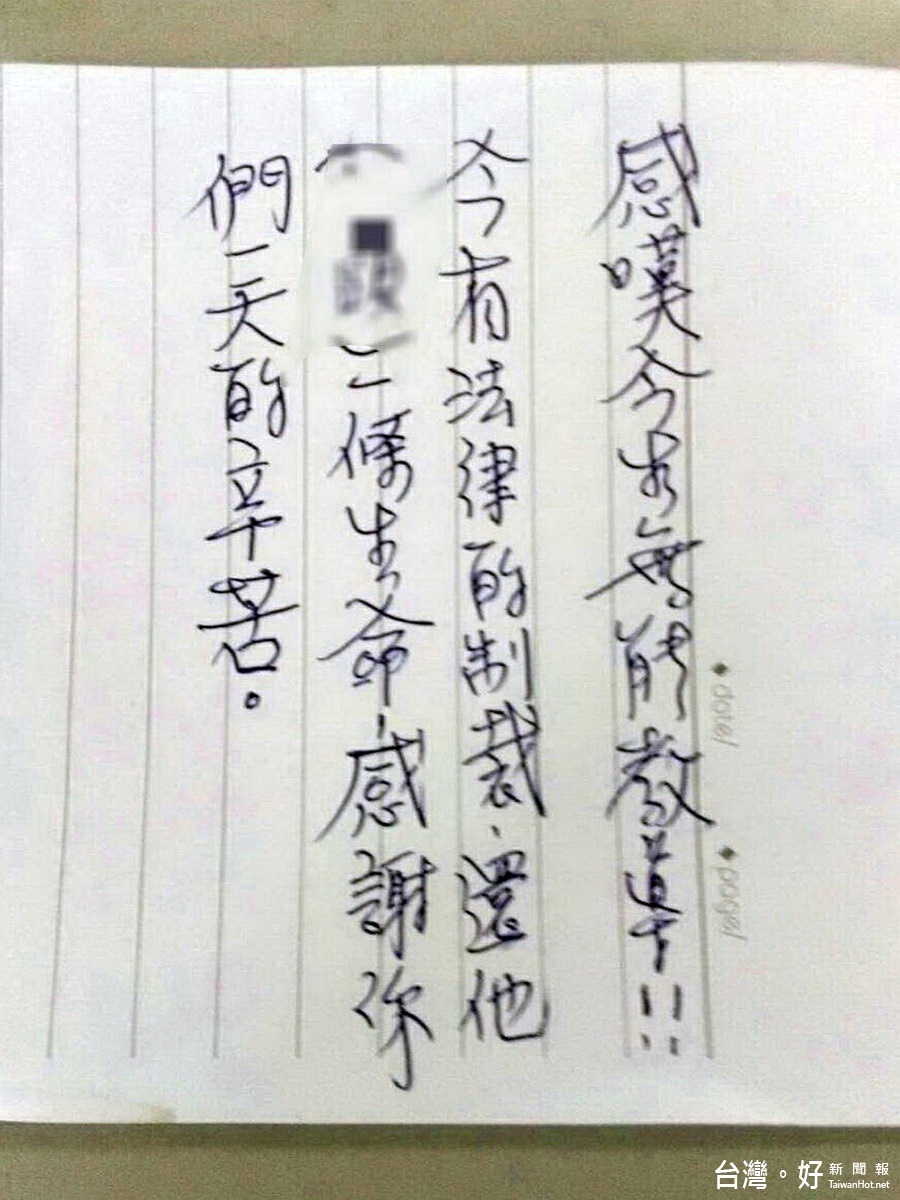 感嘆今者無能教導!!
今有法律的制裁、還他
( )一條生命,感謝你
們一天的辛苦。
date/
page/
台灣。好 新聞報
TaiwanHot.net